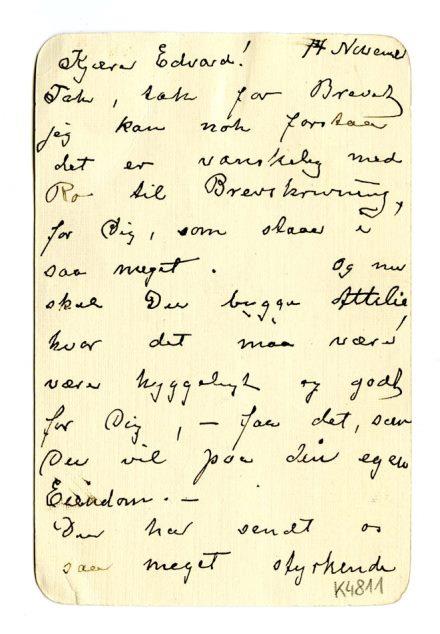 Kjære Edvard! 14 November
Tak, tak for Brevet
jeg kan nok forstaa
det er vanskelig med
Ro til Brevskrivning,
for Dig, som staar i
saa meget. Og nu
skal Du bygge Attelie
hvor det maa være
være hyggeligt og godt
for Dig, – faa det, som
Du vil paa din egen
Eiendom. –
Du har sendt os
saa meget styrkende
K4811